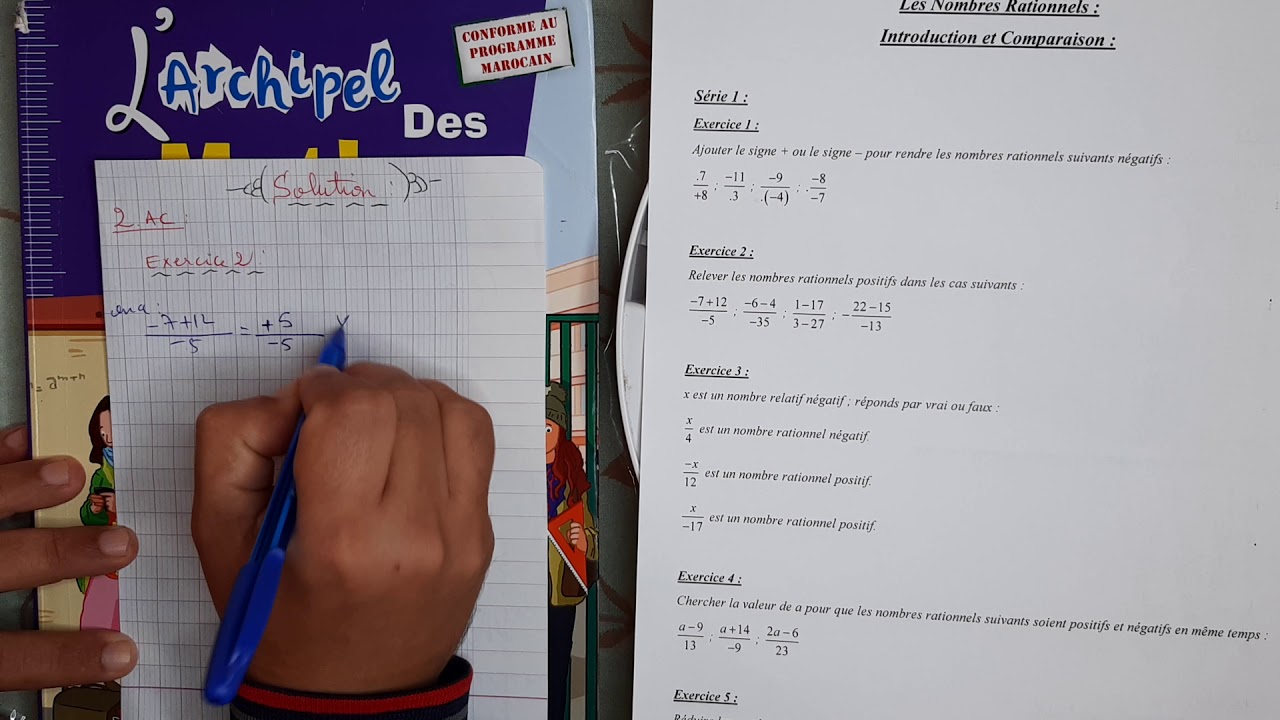 L'Archipel
Des
CONFORME AU
PROGRAMME
MAROCAIN
Solution :
2.AC
Exercice 2 :
ona :
-7+12 / -5 = +5 / -5
= a^m+n
Les Nombres Rationnels :
Introduction et Comparaison :
Série 1 :
Exercice 1 :
Ajouter le signe + ou le signe – pour rendre les nombres rationnels suivants négatifs :
.7/+8 ; –11/.3 ; –9/.(–4) ; .–8/–7
Exercice 2 :
Relever les nombres rationnels positifs dans les cas suivants :
–7+12/–5 ; –6–4/–35 ; 1–17/3–27 ; –22–15/–13
Exercice 3 :
x est un nombre relatif négatif ; réponds par vrai ou faux :
x/4 est un nombre rationnel négatif.
–x/12 est un nombre rationnel positif.
x/–17 est un nombre rationnel positif.
Exercice 4 :
Chercher la valeur de a pour que les nombres rationnels suivants soient positifs et négatifs en même temps :
a–9/13 ; a+14/–9 ; 2a–6/23
Exercice 5 :